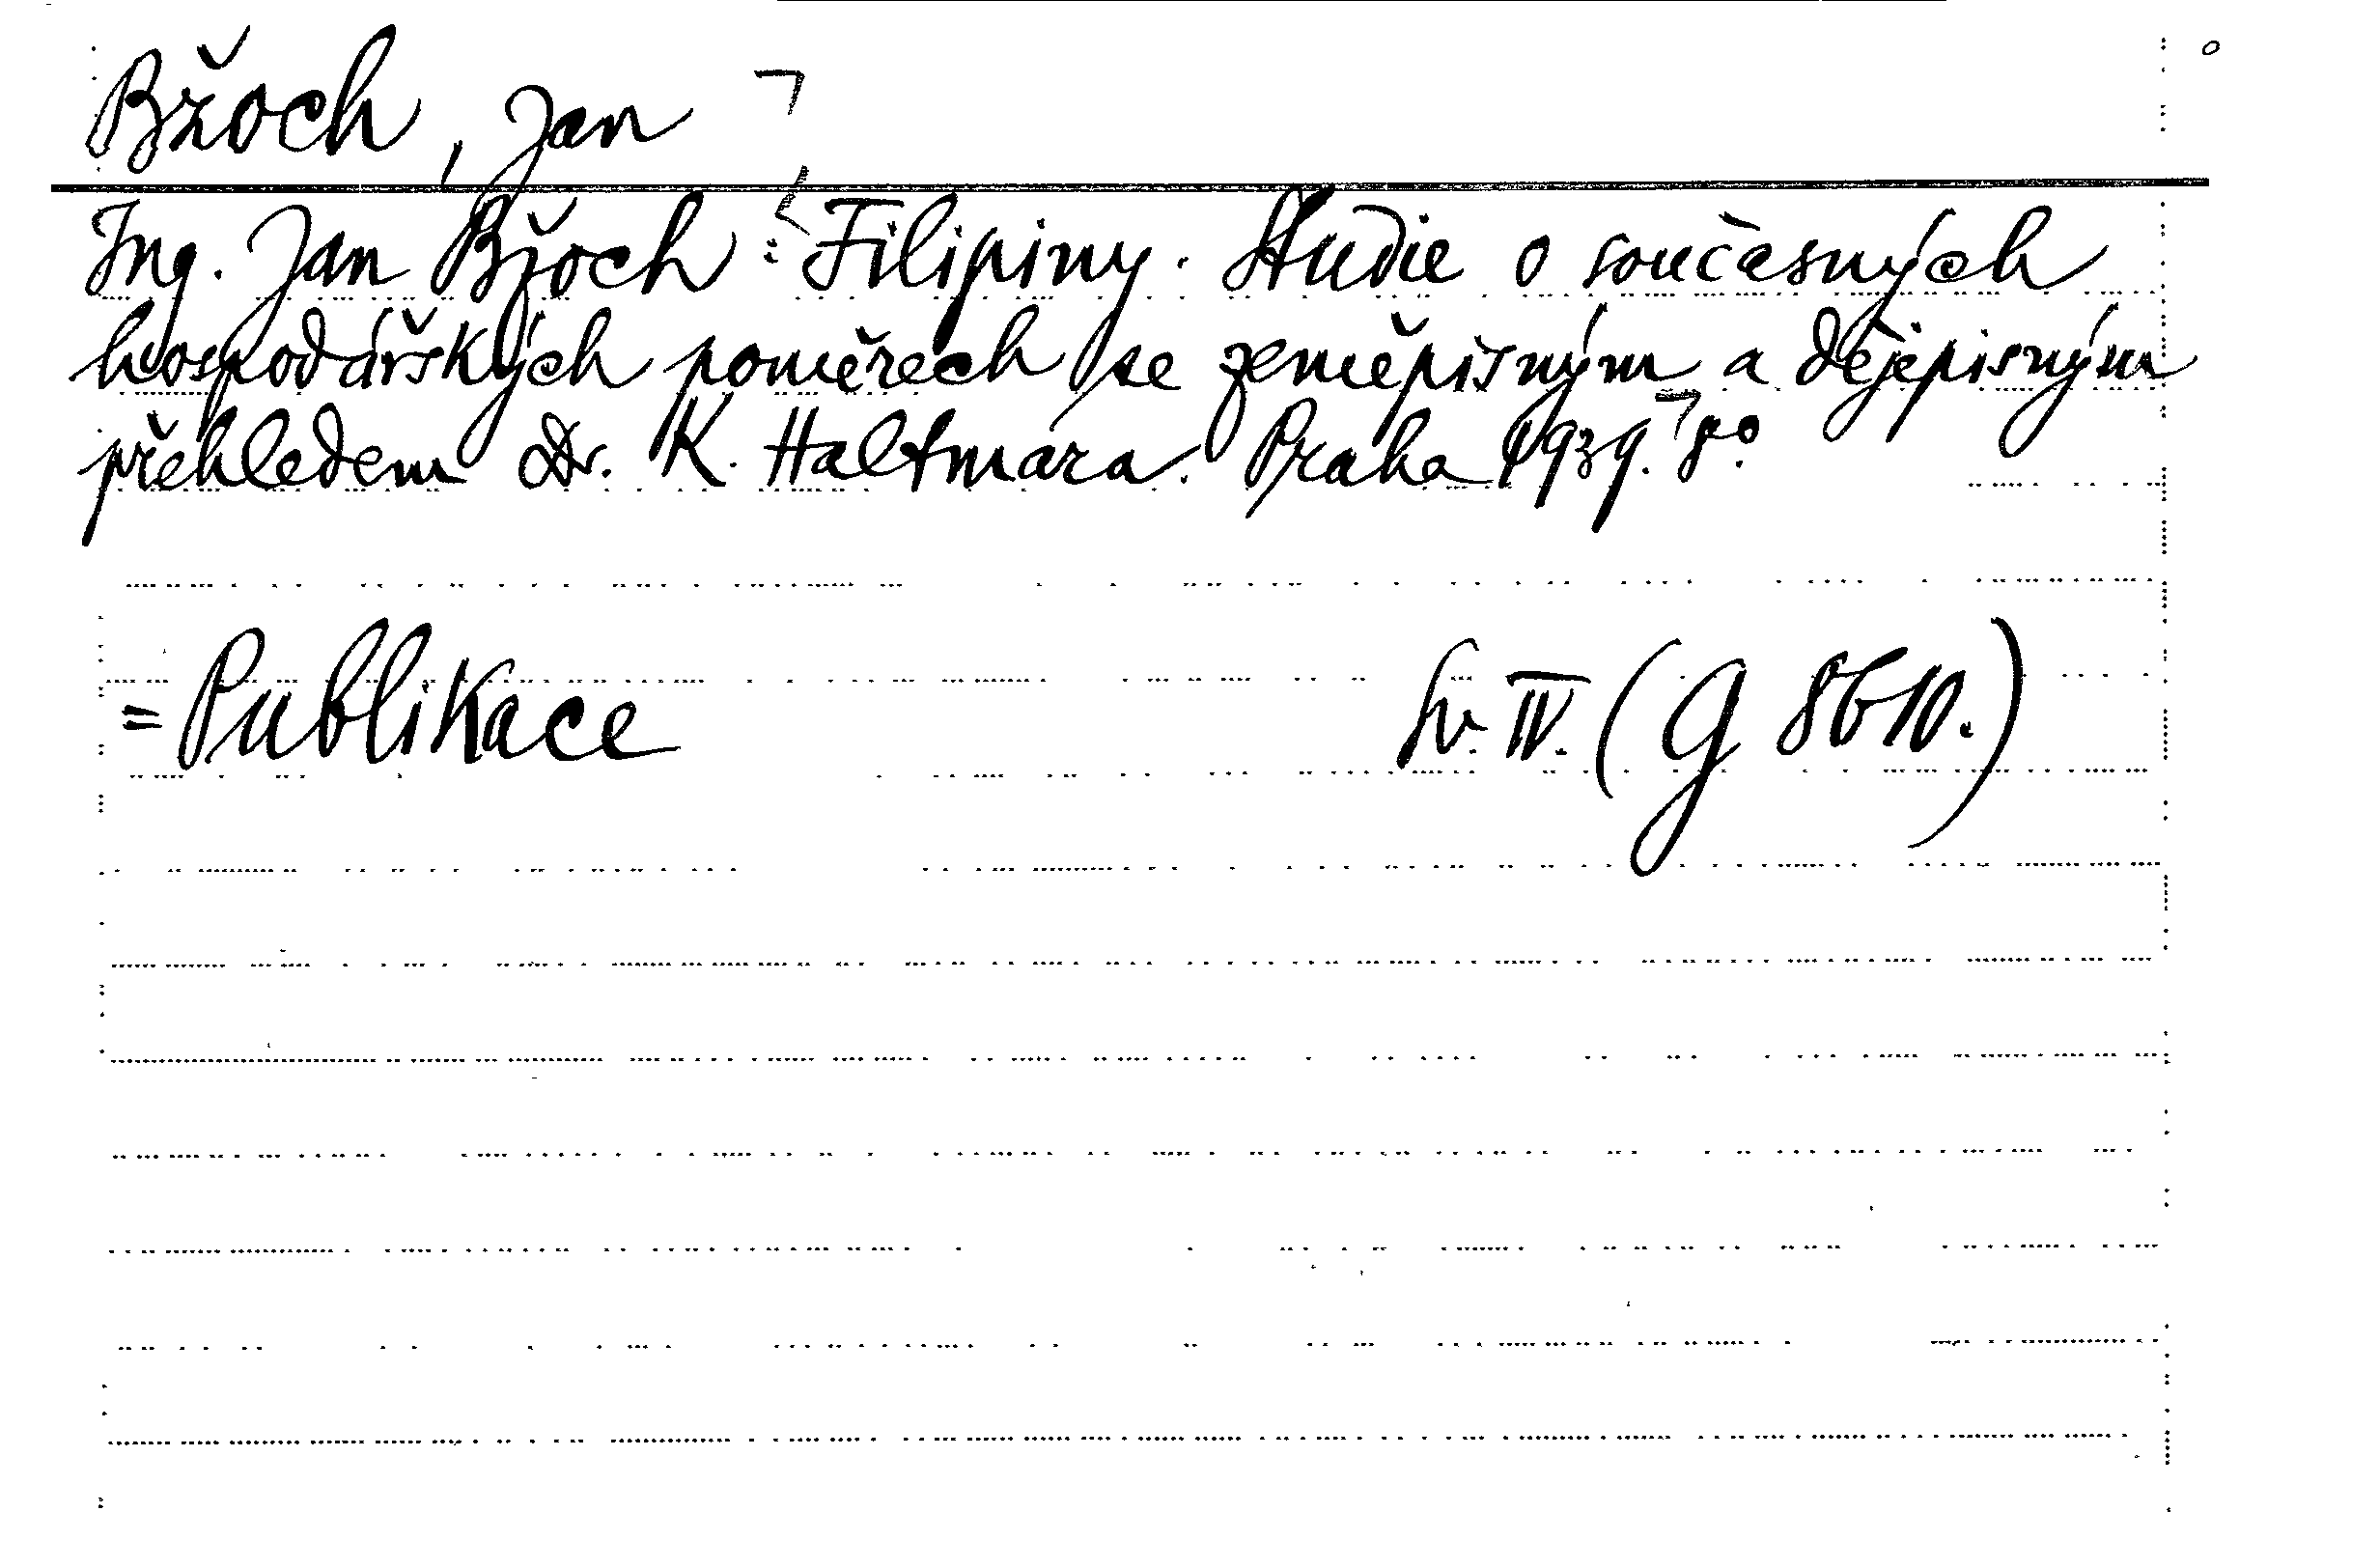 Bžoch, Jan
Ing. Jan Bžoch: Filipiny. Studie o současných
hospodářských poměrech se zeměpisným a dějepisným
přehledem Dr. K. Haltmara. Praha 1939. 8°.
= Publikace Sv. IV. (G 8610.)